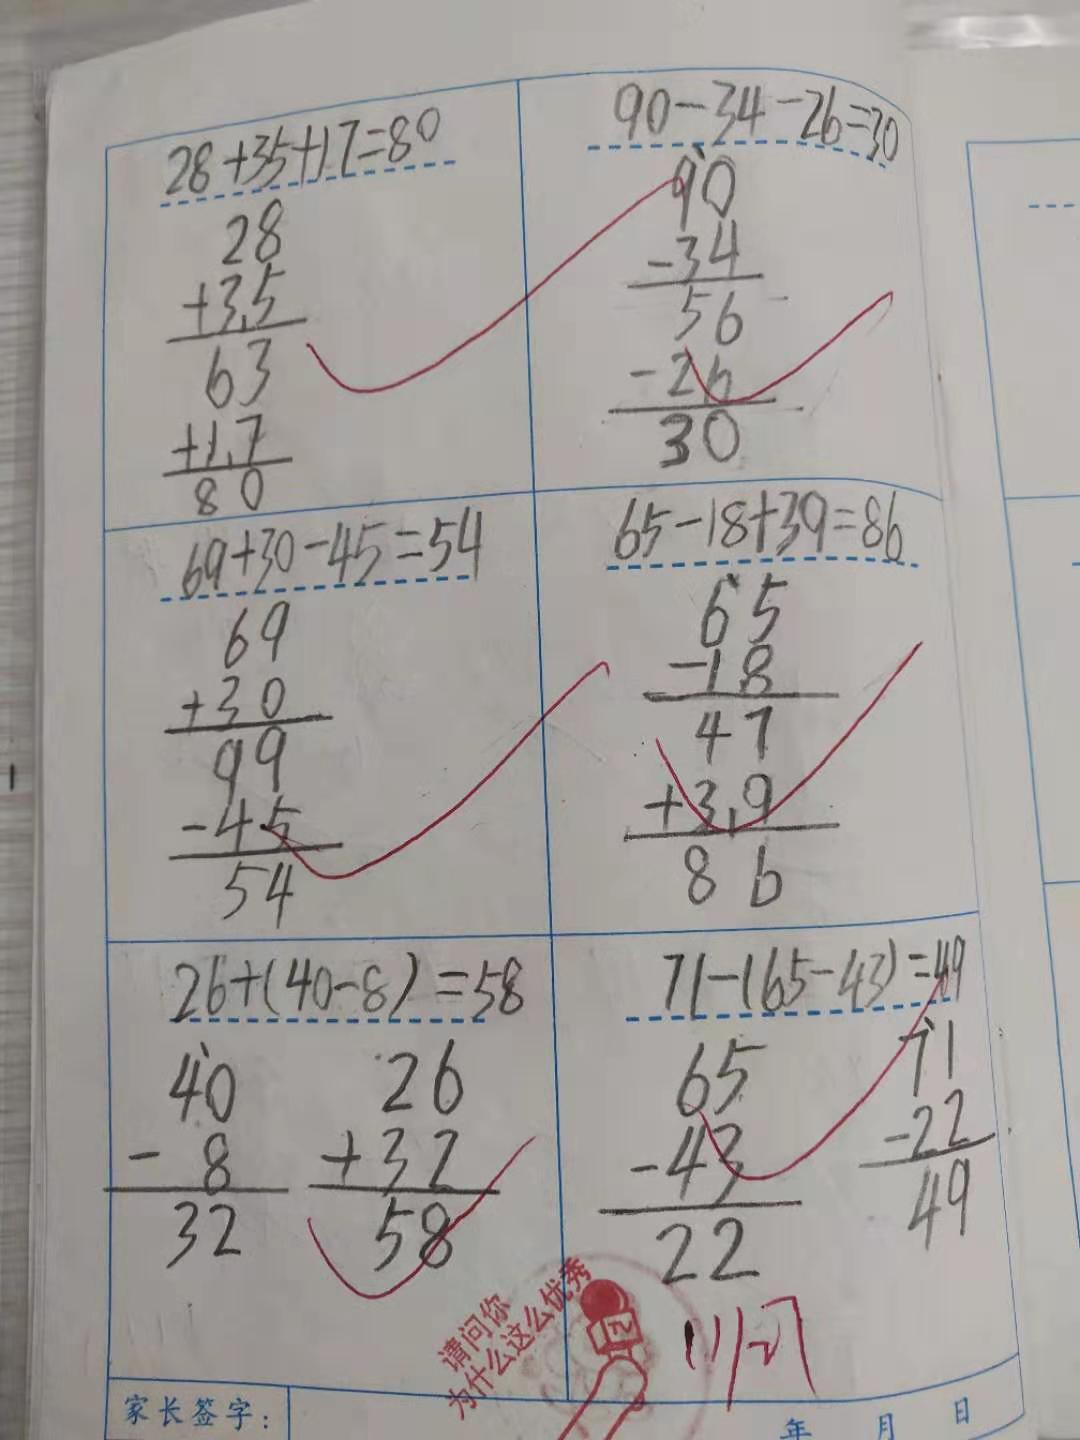 28+35+17=80
28
+35
63
+17
80
90-34-26=30
90
-34
56
-26
30
69+30-45=54
69
+30
99
-45
54
65-18+39=86
65
-18
47
+39
86
26+(40-8)=58
40
- 8
32
26
+32
58
71-(65-43)=49
65
-43
22
71
-22
49
请问你
为什么这么优秀
家长签字:
年 月 日